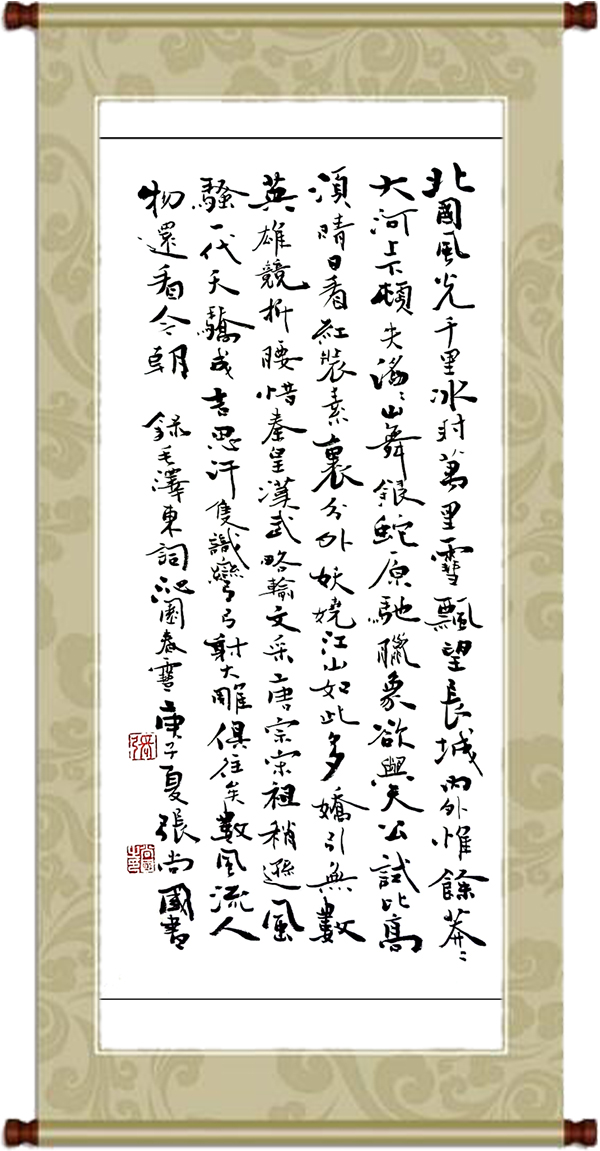 北國风光千里冰封萬里雪飄望長城內外惟餘莽〻
大河上下頓失滔〻山舞銀蛇原馳臘象欲與天公試比高
須晴日看紅裝素裹分外妖嬈江山如此多嬌引無數
英雄競折腰惜秦皇漢武略輸文采唐宗宋祖稍遜风
騷一代天驕成吉思汗隻識彎弓射大雕俱往矣數风流人
物還看今朝 錄毛澤東詞沁園春雪庚子夏張尚國書
尚國之印